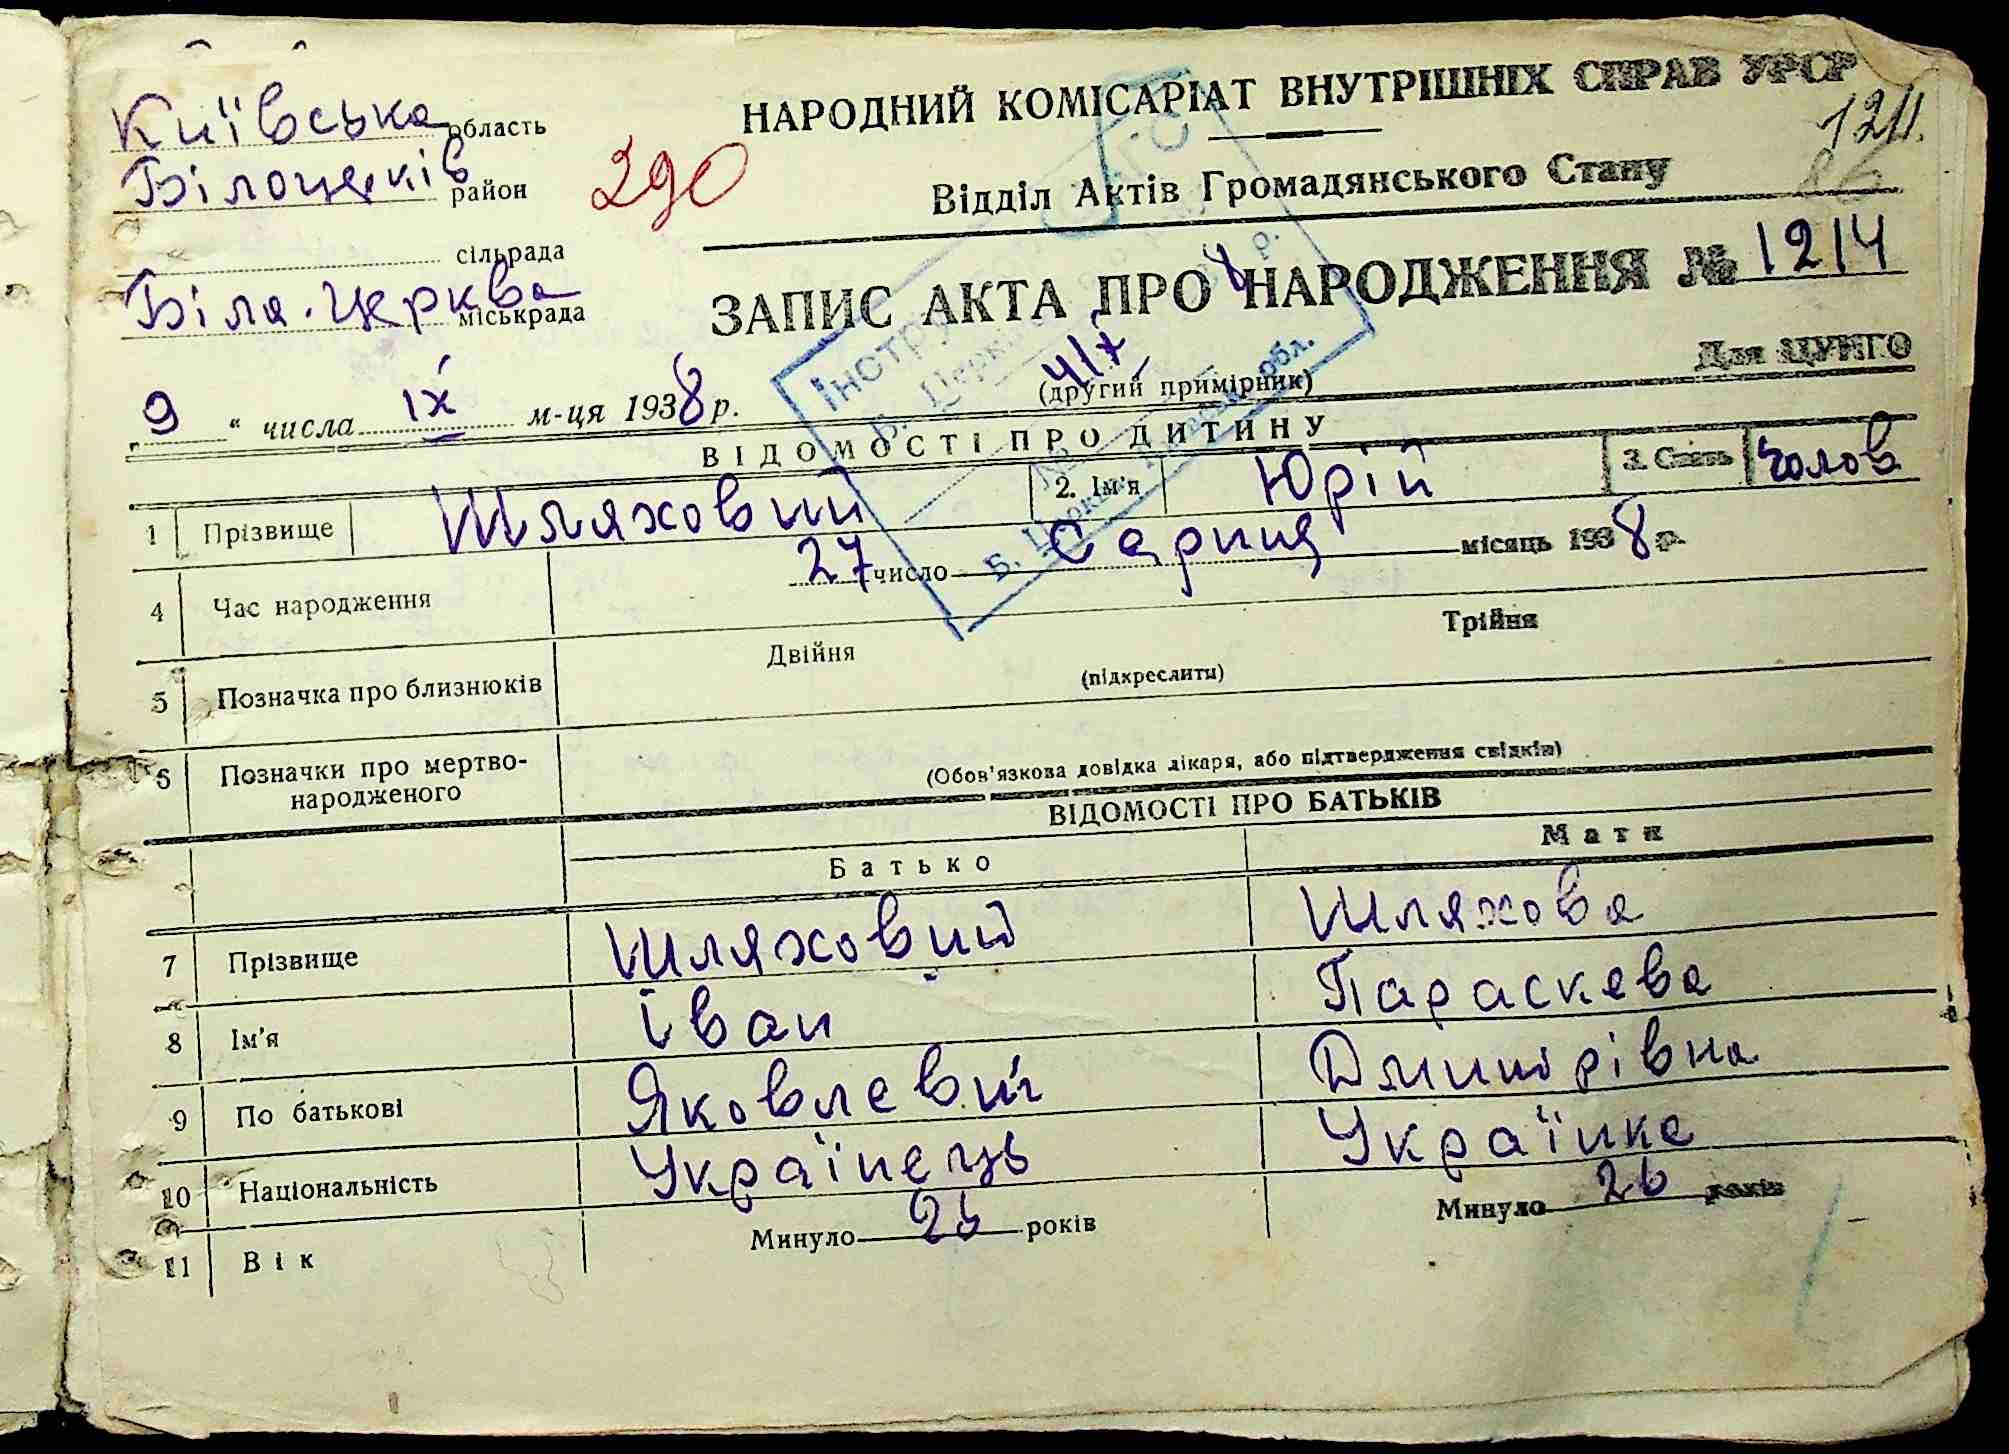 Київська область
Білоцерків район
сільрада
Біла-Церква міськрада
290
НАРОДНИЙ КОМІСАРІАТ ВНУТРІШНІХ СПРАВ УРСР
Відділ Актів Громадянського Стану
ЗАПИС АКТА ПРО НАРОДЖЕННЯ № 1214
Для ЦУНГО
(другий примірник)
„ 9 “ числа ІХ м-ця 1938 р.
ВІДОМОСТІ ПРО ДИТИНУ
1 Прізвище Шляховий 2. Ім'я Юрій 3. Стать Чолов
4 Час народження 27 число Серпня місяць 1938 р.
5 Позначка про близнюків Двійня Трійня
(підкреслити)
6 Позначки про мертво-
народженого
(Обов'язкова довідка лікаря, або підтвердження свідків)
ВІДОМОСТІ ПРО БАТЬКІВ
Батько Мати
7 Прізвище Шляховий Шляхова
8 Ім'я Іван Параскева
9 По батькові Яковлевич Дмитрівна
10 Національність Українець Українка
11 Вік Минуло 26 років Минуло 26 років